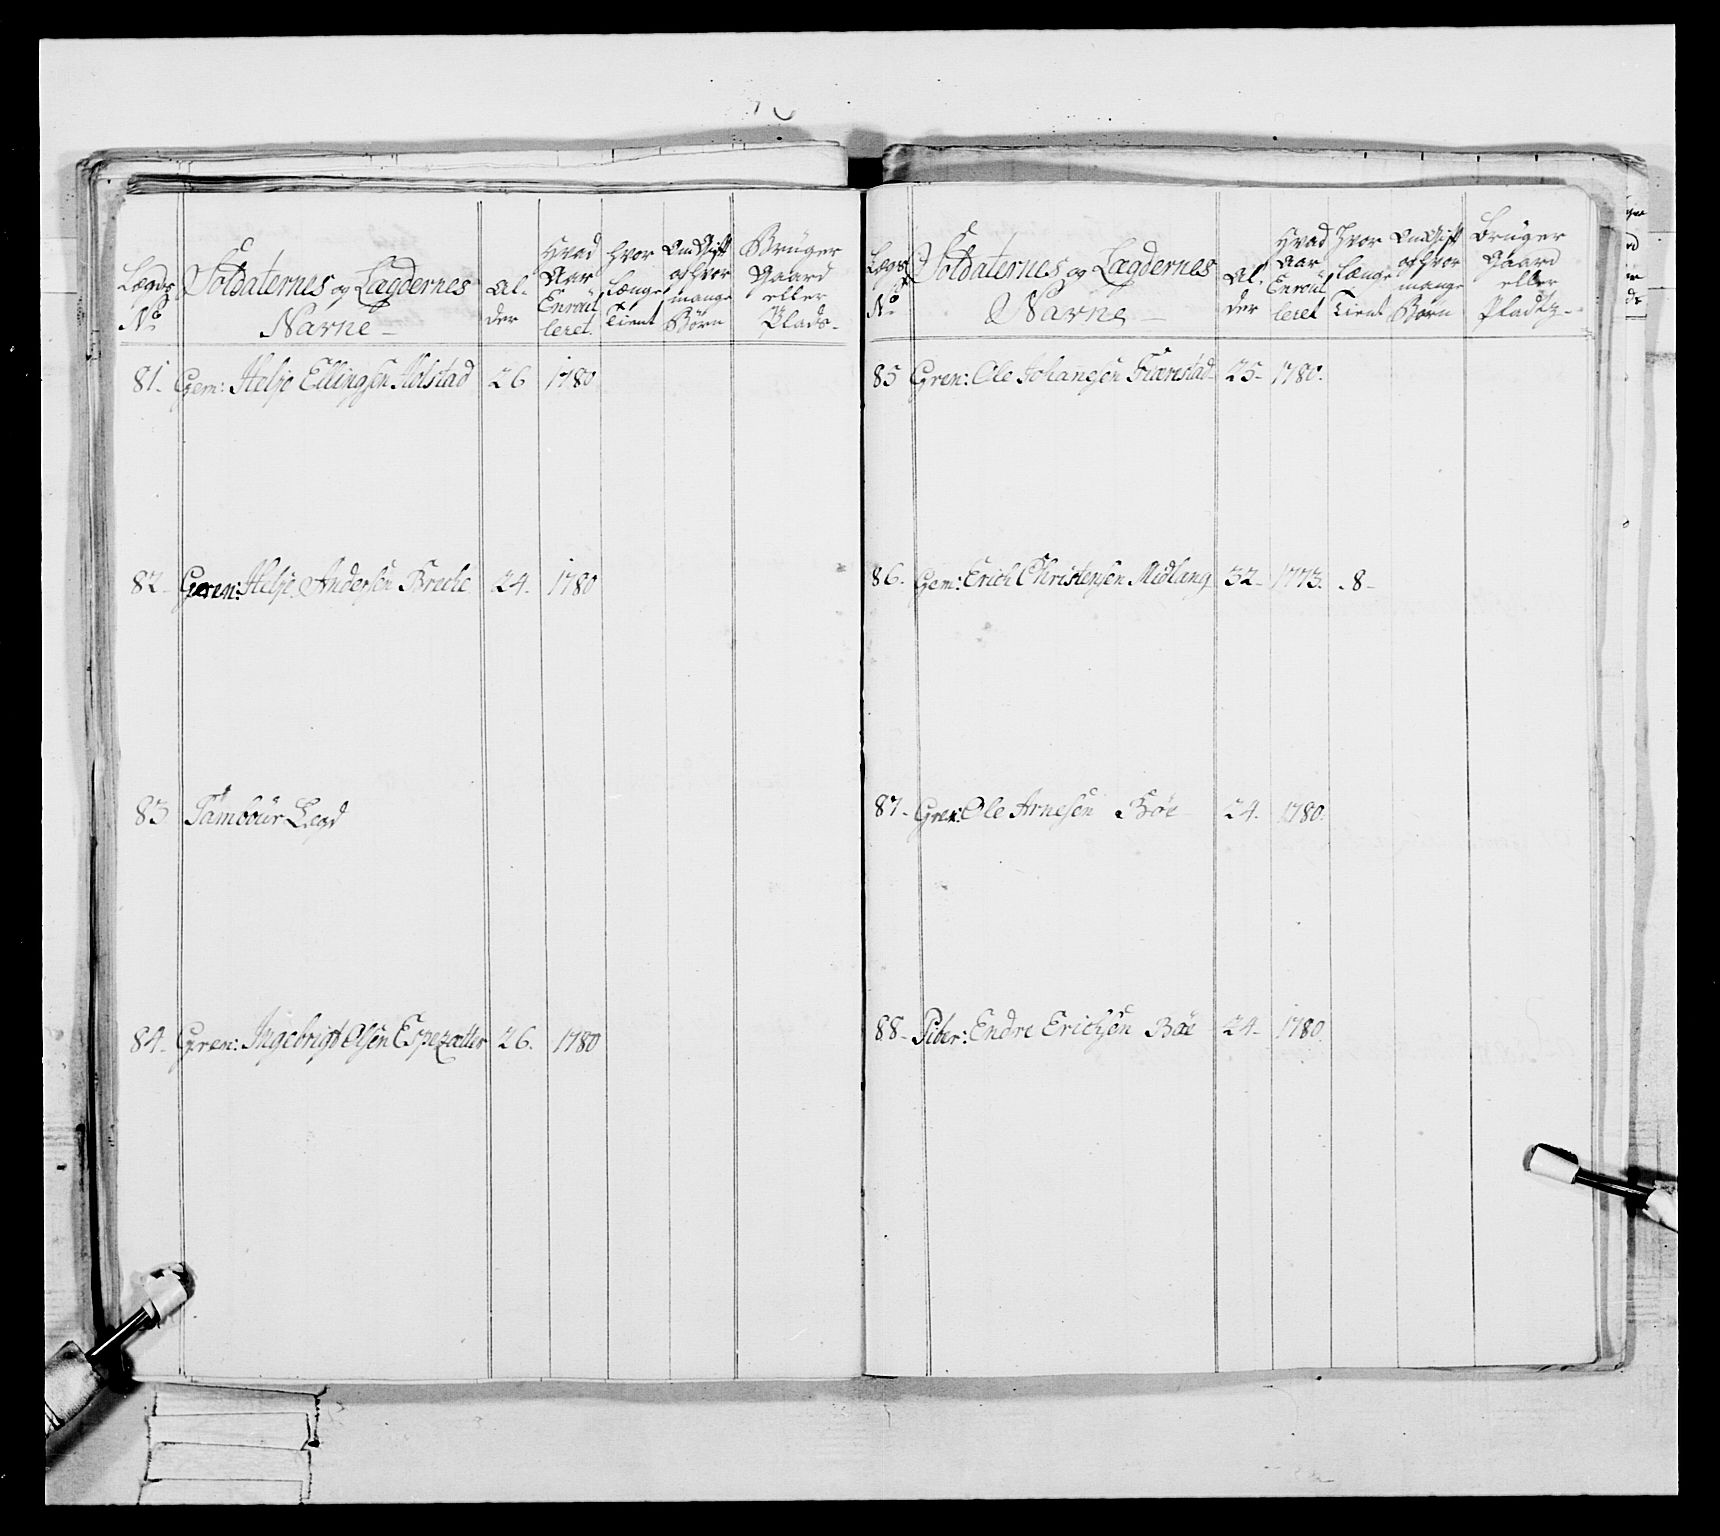 Lægds No
Soldaternes og Lægdernes Navne
Alder
Hvad Aar Enroulleret
hvor længe Tient
Om Gift og hvor mange Børn
Bruger Gaard eller Plads
81. Gem: Helje Ellingsen Holstad 26 1780
82. Gren: Helje Andersen Breche 24. 1780
83 Tambour Lægd
84. Gren: Ingebrigt Olsen 26. 1780
Lægds No
Soldaternes og Lægdernes Navne
Alder
Hvad Aar Enroulleret
Hvor længe Tient
Om Gift og hvor mange Børn
Bruger Gaard eller Pladtz
85 Gren: Ole Johansen 25 1780.
86. Gem: Erich Christensen Midlang 32 1773. 8
87. Gren: Ole Arnesen Bøe 24. 1780.
88. Piber: Endre Erichsen Bøe 24 1780.